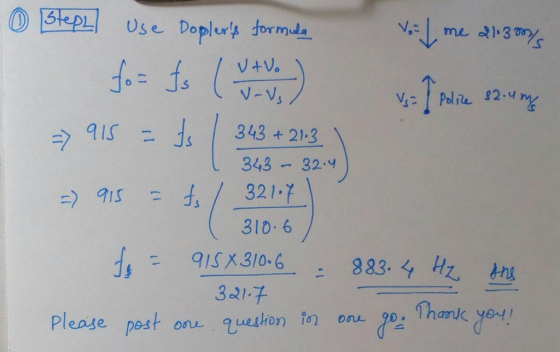 ① Step1 Use Dopler's formula
V₀= ↓ me 21.3 m/s
f₀ = fs ( V+V₀ / V-Vs )
Vs= ↑ Police 32.4 m/s
⇒ 915 = fs ( 343 + 21.3 / 343 - 32.4 )
⇒ 915 = fs ( 321.7 / 310.6 )
fs = 915×310.6 / 321.7 = 883.4 Hz Ans
Please post one question in one go. Thank you!